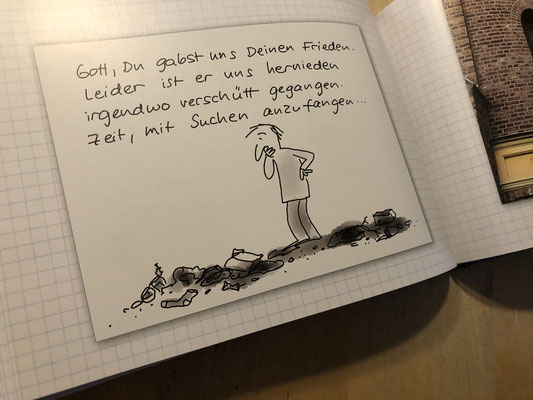 Gott, Du gabst uns Deinen Frieden.
Leider ist er uns hernieden
irgendwo verschütt gegangen.
Zeit, mit Suchen anzufangen...